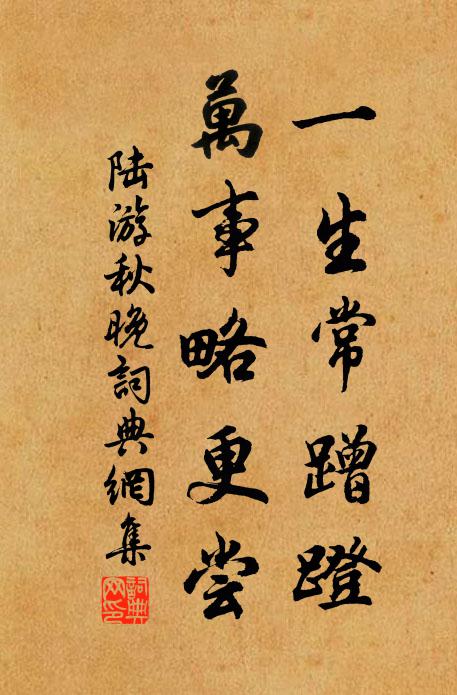 一生常蹭蹬
萬事略更尝
陆游秋晚詞典網集
詞典网印